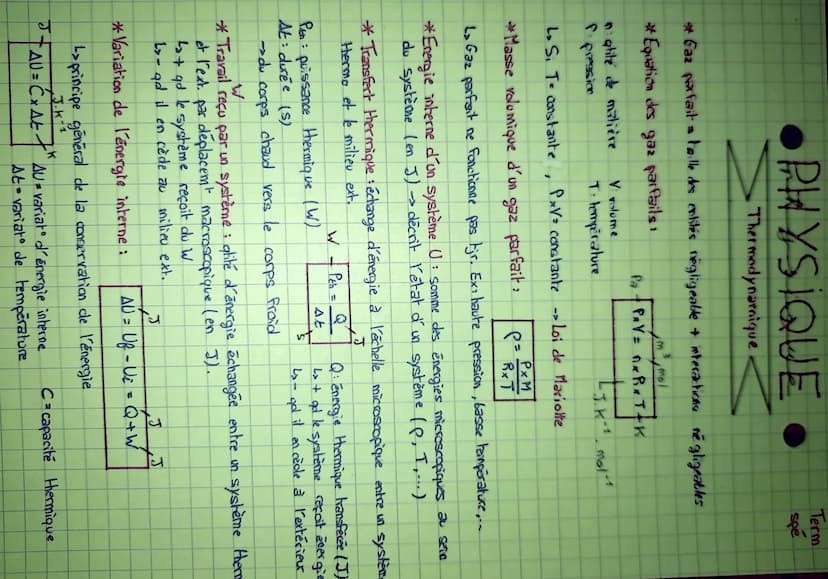 Term spé
PHYSIQUE
Thermodynamique
* Gaz parfait = taille des entités négligeable + interactions négligeables
* Equation des gaz parfaits :
Pa m³ mol
P x V = n x R x T → K
J.K⁻¹.mol⁻¹
n : qtité de matière V : volume
P : pression T : température
↳ Si T = constante, P x V = constante → Loi de Mariotte
* Masse volumique d'un gaz parfait : ρ = P x M / R x T
↳ Gaz parfait ne fonctionne pas tjr. Ex : haute pression, basse température, ...
* Energie interne d'un système U : somme des énergies microscopiques au sein
du système (en J) → décrit l'état d'un système (P, T, ...)
* Transfert thermique : échange d'énergie à l'échelle microscopique entre un systèm
thermo et le milieu ext.
W ← Pth = Q / Δt
J
s
Pth : puissance thermique (W) Q : énergie thermique transférée (J)
Δt : durée (s) ↳ + qd le système reçoit énergie
→ du corps chaud vers le corps froid ↳ - qd il en cède à l'extérieur
* Travail W reçu par un système : qtité d'énergie échangée entre un système ther
et l'ext. par déplacemt macroscopique (en J).
↳ + qd le système reçoit du W
↳ - qd il en cède au milieu ext.
* Variation de l'énergie interne : ΔU = Uf - Ui = Q + W
J J J
↳ principe général de la conservation de l'énergie
J.K⁻¹
J ← ΔU = C x Δt K ΔU = variat° d'énergie interne C = capacité thermique
Δt = variat° de température